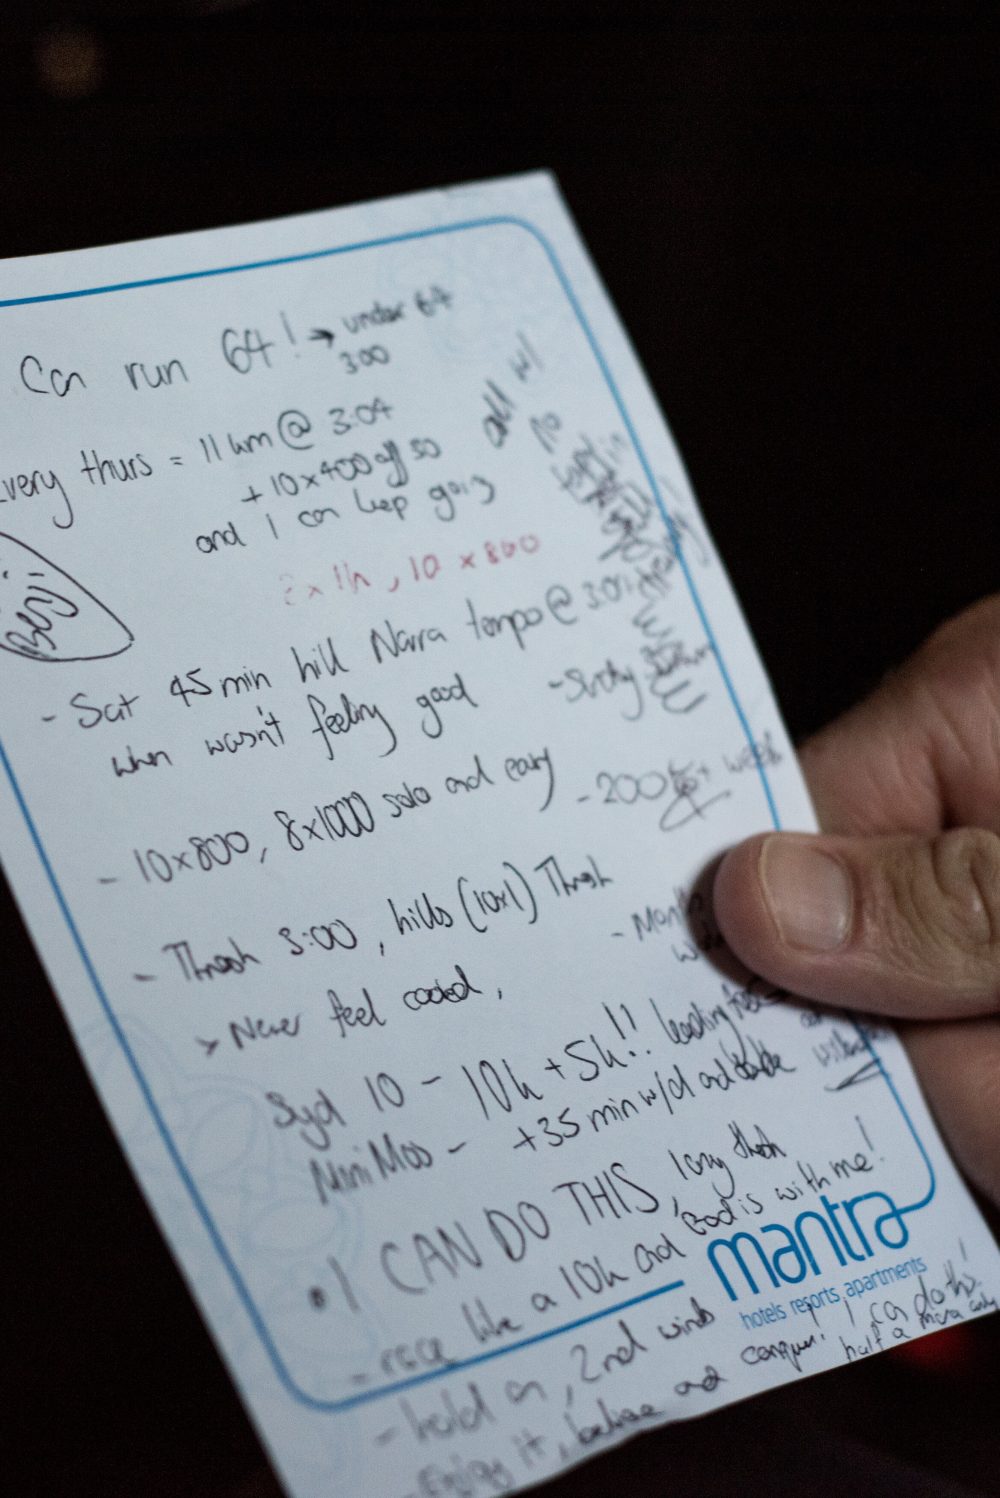 Can run 64! → under 64
300
Every thurs = 11km @ 3:04
+ 10x400 off 50
and I can keep going
2 x 1h, 10 x 800
- Sat 45min hill Narra tempo @ 3:01
when wasn't feeling good
- 10x800, 8x1000 solo and easy
- 200 + week
- Thresh 3:00, hills (10x1) Thresh
> Never feel cooked,
Syd 10 - 10k + 5k!! leading
Mini Mos - +35 min w/d and double
• I CAN DO THIS, long thresh
- race like a 10k and God is with me!
mantra
hotels resorts apartments
- hold on, 2nd winds
- Enjoy it, believe and conquer! I can do this!
half a mara only